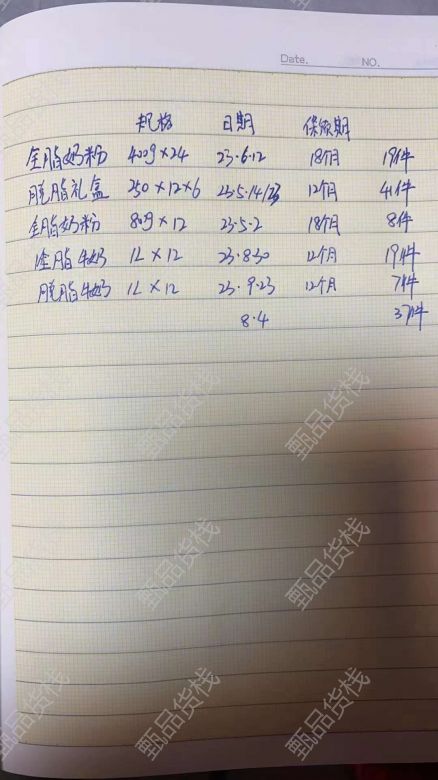 Date. NO.
规格 日期 保质期
全脂奶粉 400g×24 23.6.12 18个月 19件
脱脂礼盒 250×12×6 23.5.14/23 12个月 41件
全脂奶粉 800g×12 23.5.2 18个月 8件
全脂牛奶 1L×12 23.8.30 12个月 19件
脱脂牛奶 1L×12 23.9.23 12个月 7件
8.4 37件
甄品货栈
甄品货栈
甄品货栈
甄品货栈
甄品货栈
甄品货栈
甄品货栈
甄品货栈
甄品货栈
甄品货栈